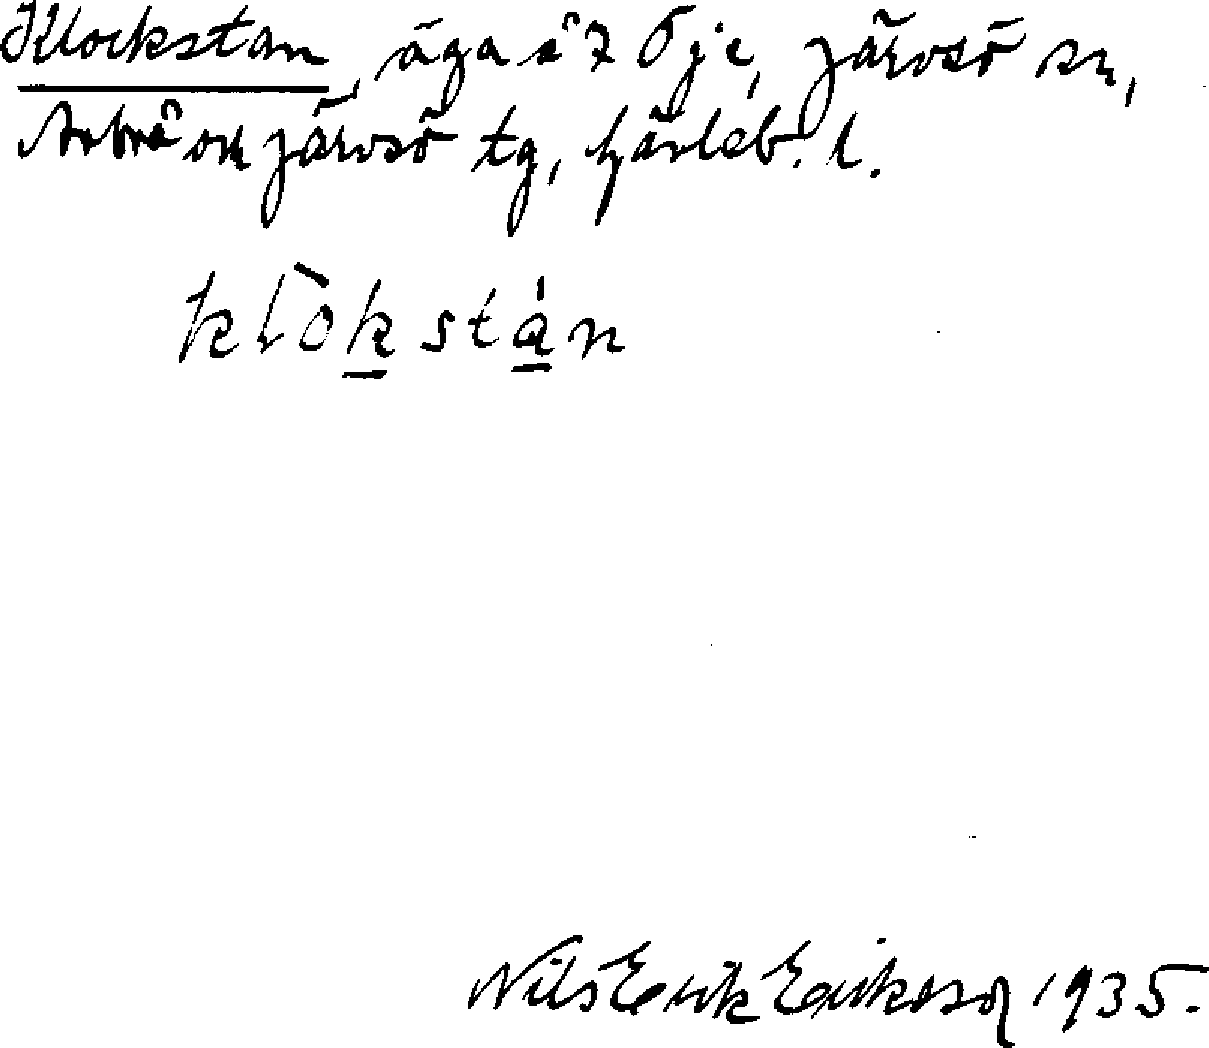 Klockstan, äga å 7 Öje, Järvsö sn,
Arbrå och Järvsö tg, Gävleb. l.
klòkstán
Nils Erik Eriksson 1935.